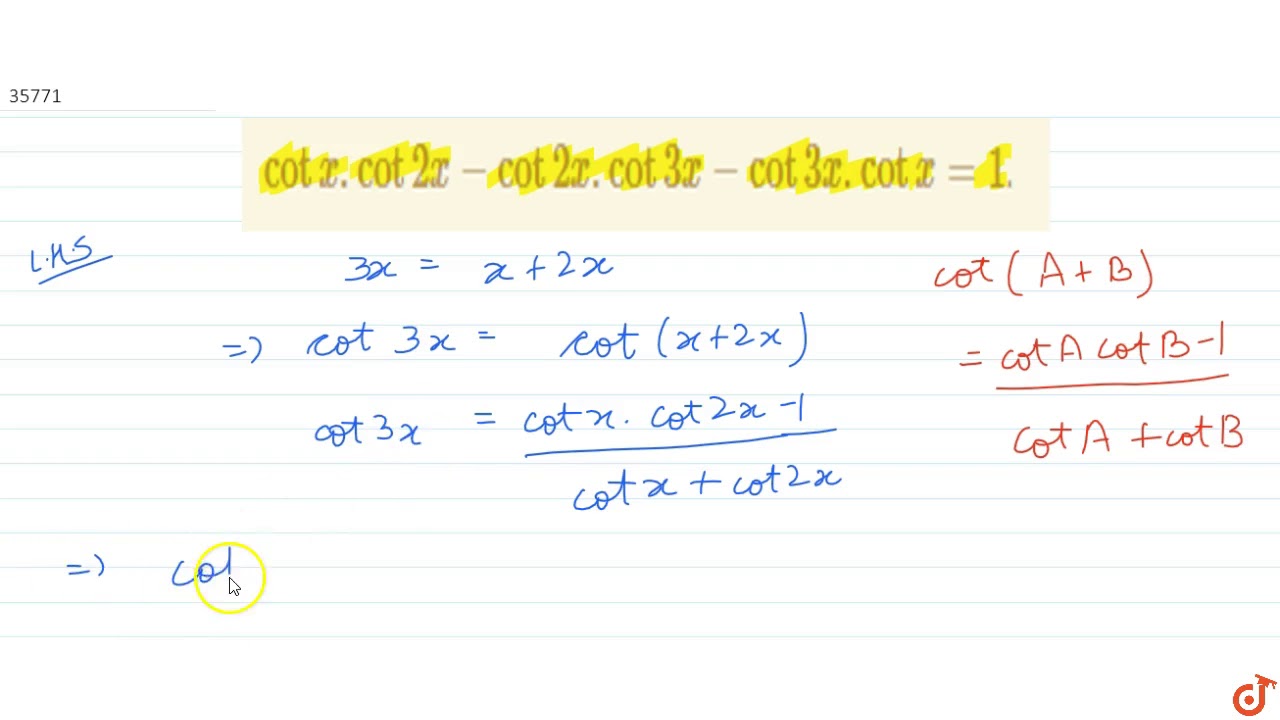 35771
cot x. cot 2x − cot 2x. cot 3x − cot 3x. cot x = 1.
L.H.S
3x = x + 2x
cot (A + B)
=) cot 3x = cot (x+2x)
= cot A cot B -1
cot A + cot B
cot 3x = cot x. cot 2x -1
cot x + cot 2x
=) cot